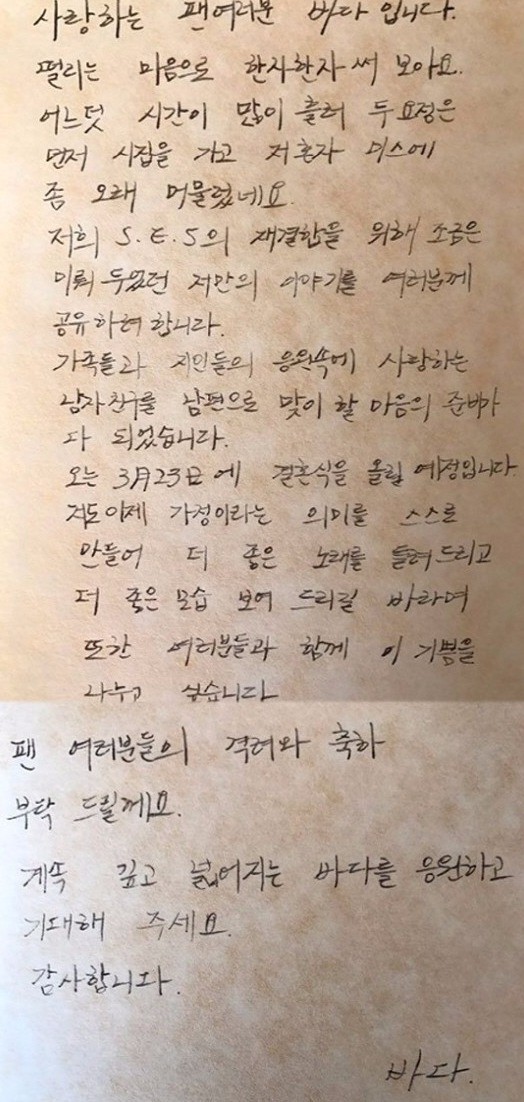 사랑하는 팬여러분 바다입니다.
떨리는 마음으로 한자한자 써 보아요.
어느덧 시간이 많이 흘러 두요정은
먼저 시집을 가고 저혼자 미스에
좀 오래 머물렀네요.
저희 S.E.S의 재결합을 위해 조금은
미뤄 두었던 저만의 이야기를 여러분께
공유하려 합니다.
가족들과 지인들의 응원속에 사랑하는
남자친구를 남편으로 맞이 할 마음의 준비가
다 되었습니다.
오는 3月23日에 결혼식을 올릴 예정입니다.
저도이제 가정이라는 의미를 스스로
만들어 더 좋은 노래를 들려드리고
더 좋은 모습 보여 드리길 바라며
또한 여러분들과 함께 이 기쁨을
나누고 싶습니다
팬 여러분들의 격려와 축하
부탁 드릴께요.
계속 깊고 넓어지는 바다를 응원하고
기대해 주세요.
감사합니다.
바다.